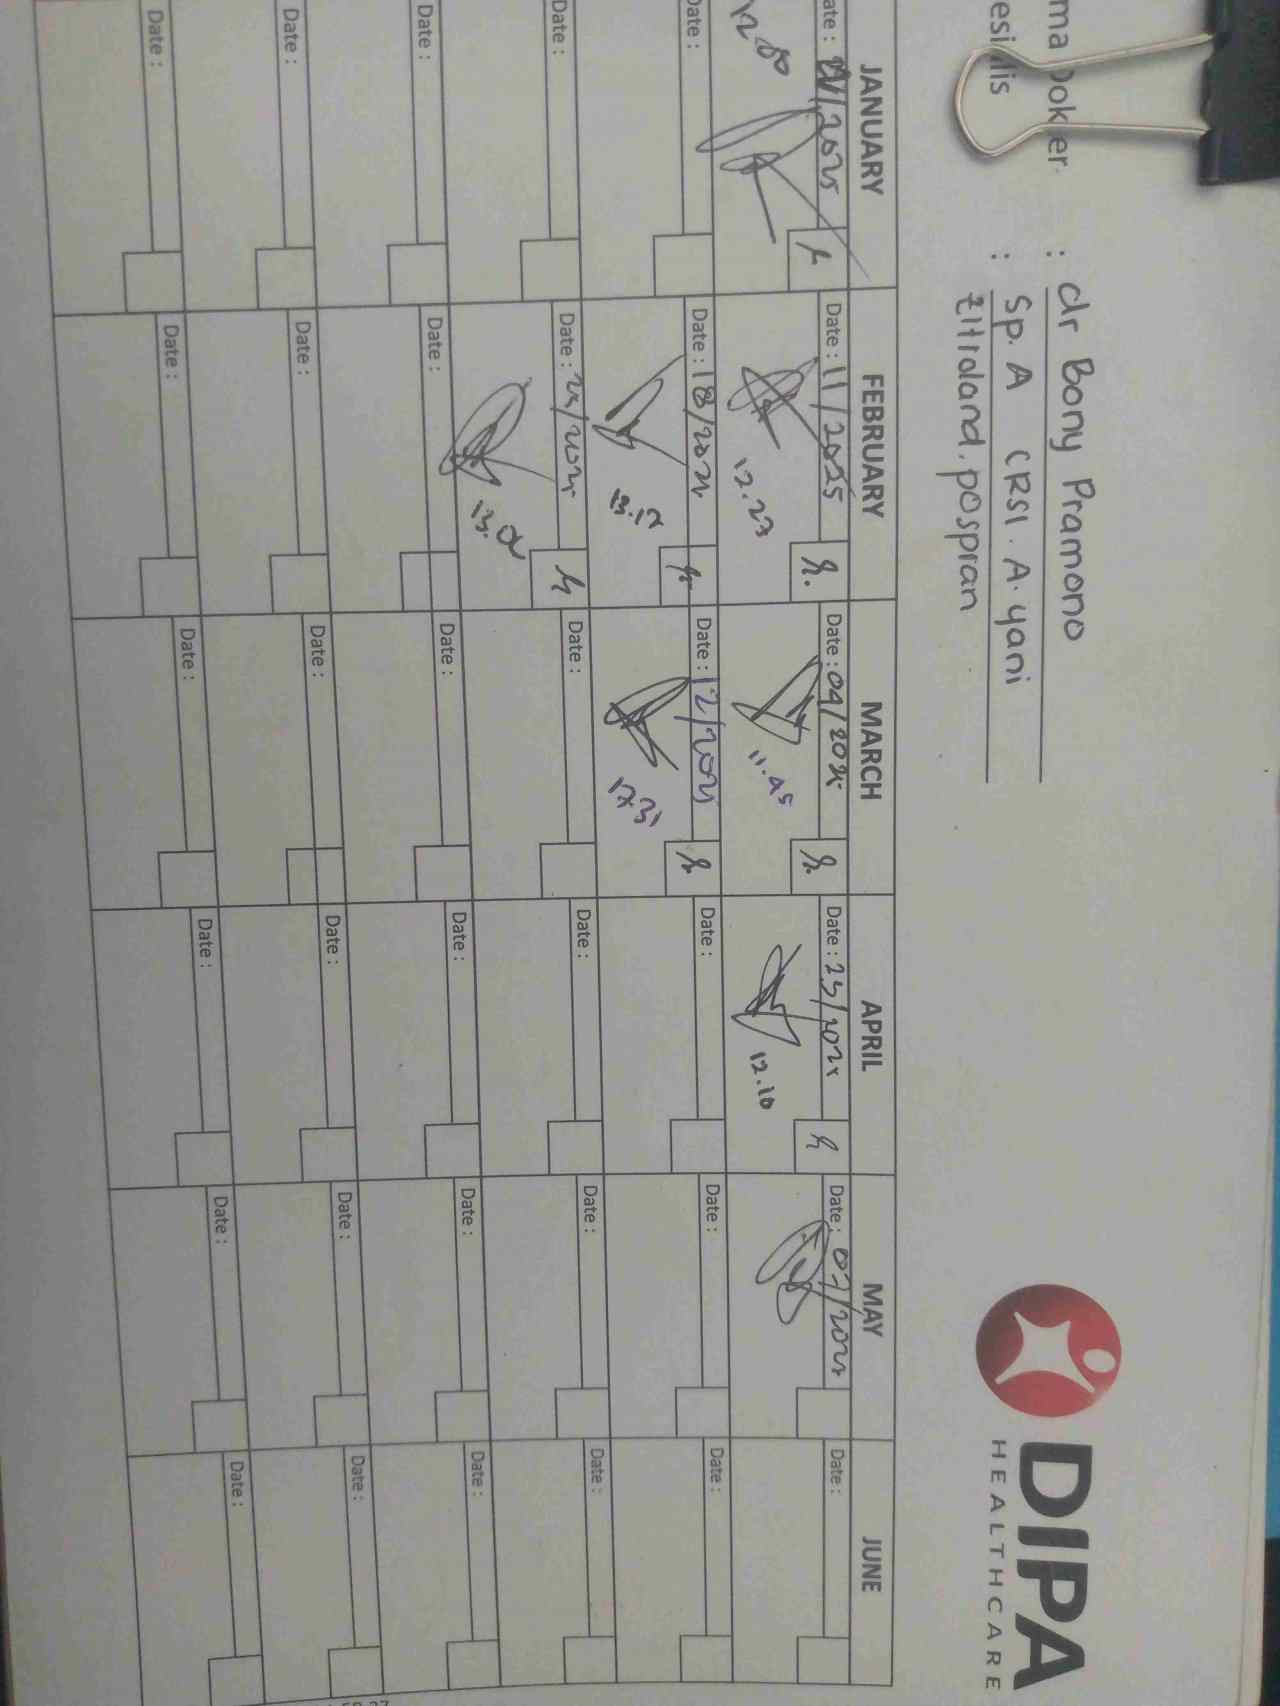 DIPA
HEALTHCARE
ma Dokter : dr Bony Pramono
esialis : Sp. A CRSI. A. yani
pospran
JANUARY FEBRUARY MARCH APRIL MAY JUNE
ate : /2025 Date : 11/2025 Date : 04/2025 Date : 23/2025 Date : 07/2025 Date :
12.23 11.45 12.10
Date : Date : 18/2025 Date : 12/2025 Date : Date : Date :
13.17 17.31
Date : Date : 25/2025 Date : Date : Date : Date :
Date : Date : Date : Date : Date : Date :
Date : Date : Date : Date : Date : Date :
Date : Date : Date : Date : Date : Date :